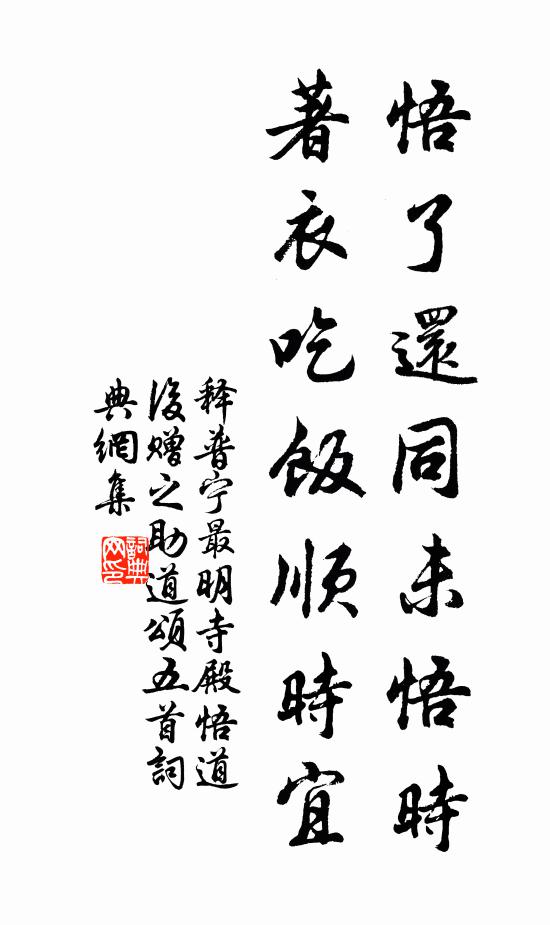 悟了還同未悟時
著衣吃飯順時宜
释普宁最明寺殿悟道
後赠之助道頌五首詞
典網集
詞典网印